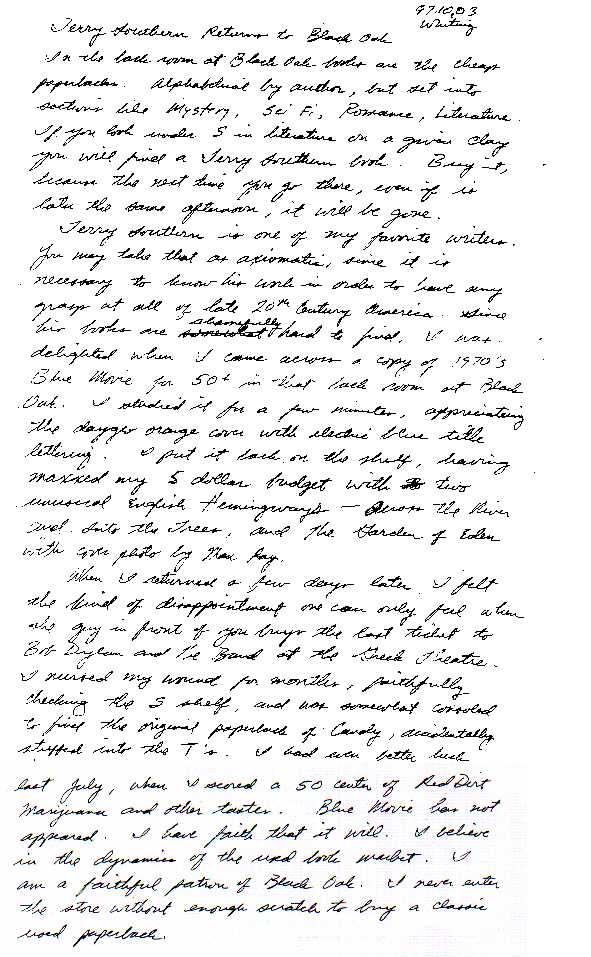 97.10.03
Writing
Terry Southern Returns to Black Oak
In the back room at Black Oak books are the cheap
paperbacks. Alphabetical by author, but set into
sections like Mystery, Sci Fi, Romance, Literature.
If you look under S in literature on a given day
you will find a Terry Southern book. Buy it,
because the next time you go there, even if is
later the same afternoon, it will be gone.
Terry Southern is one of my favorite writers.
You may take that as axiomatic, since it is
necessary to know his work in order to have any
grasp at all of late 20th Century America. Since
his books are shamefully hard to find, I was
delighted when I came across a copy of 1970's
Blue Movie for 50¢ in that back room at Black
Oak. I studied it for a few minutes, appreciating
the dayglo orange cover with electric blue title
lettering. I put it back on the shelf, having
maxxed my 5 dollar budget with two
unusual English Hemingways — Across the River
and Into the Trees, and The Garden of Eden
with cover photo by Man Ray.
When I returned a few days later I felt
the kind of disappointment one can only feel when
the guy in front of you buys the last ticket to
Bob Dylan and The Band at the Greek Theatre.
I nursed my wound for months, faithfully
checking the S shelf, and was somewhat consoled
to find the original paperback of Candy, accidentally
stuffed into the T's. I had even better luck
last July, when I scored a 50 center of Red Dirt
Marijuana and other tastes. Blue Movie has not
appeared. I have faith that it will. I believe
in the dynamics of the used book market. I
am a faithful patron of Black Oak. I never enter
the store without enough scratch to buy a classic
used paperback.